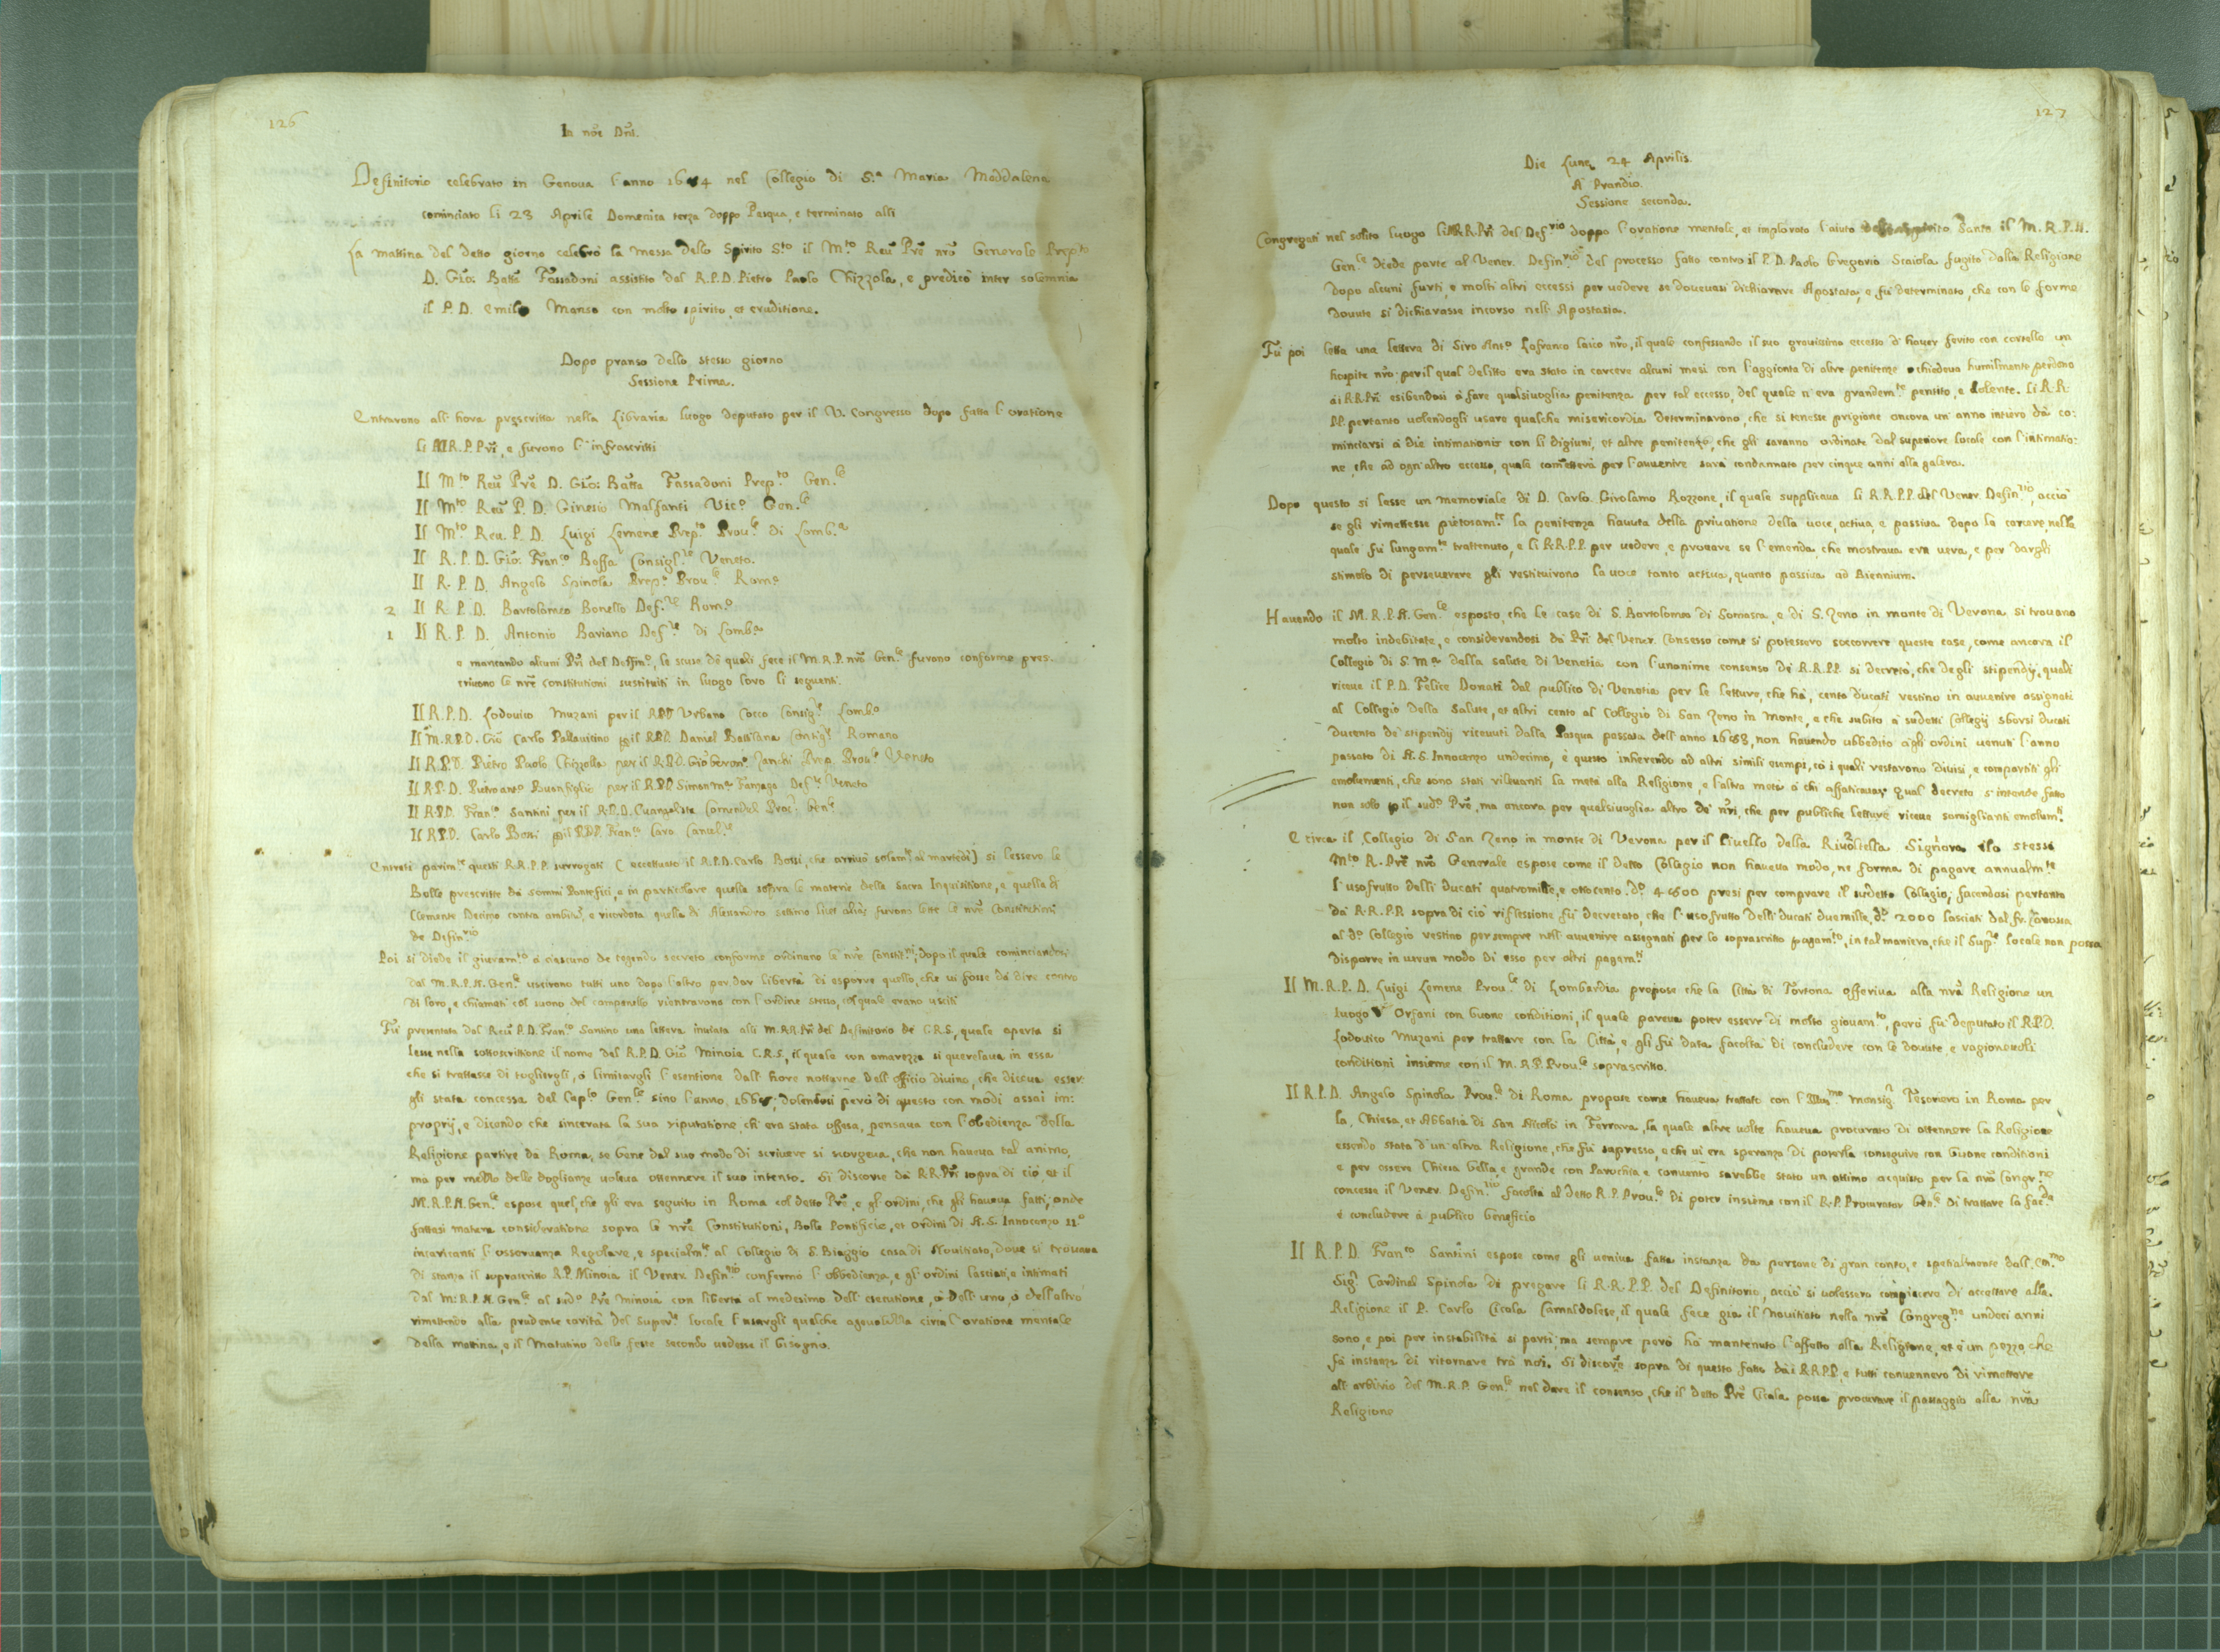 126
In nõe Dnĩ.
Definitorio celebrato in Genova l'anno 1684 nel Collegio di S.ª Maria Maddalena
cominciato li 23 Aprile Domenica terza doppo Pasqua, e terminato alli
La mattina del detto giorno celebrò la messa dello Spirito S.to il M.to Reũ Prẽ nrõ Generale Prep.to
D. Gio: Batta Fassadoni assistito dal R.P.D. Pietro Paolo Chizzola, e predicò inter solemnia
il P. D. Emilio Manso con molto spirito, et eruditione.
Dopo pranso dello stesso giorno
Sessione Prima.
Entrarono all'hora prescritta nella Libraria luogo deputato per il V. Congresso dopo fatta l'oratione
li M.R.P.Pri, e furono l'infrascritti
Il M.to Reũ Prẽ D. Gio: Batta Fassadoni Prep.to Gen.le
Il M.to Reũ P. D. Ginesio Malfanti Vic.º Gen.le
Il M.to Reu. P. D. Luigi Lemene Prep.to Prou.le di Lomb.ª
Il R. P. D. Gio: Fran.co Boffa Consigl.re Veneto.
Il R. P. D. Angelo Spinola Prep.º Prou.le Rom.º
2 Il R. P. D. Bartolomeo Bonello Def.re Rom.º
1 Il R. P. D. Antonio Baviano Def.re di Lomb.ª
e mancando alcuni Pri del Deffin.º, le scuse de quali fece il M.R.P. nrõ Gen.le furono conforme pres-
crivono le nrẽ constitutioni sustituiti in luogo loro li seguenti.
Il R.P.D. Lodovico Muzani per il RPD Urbano Cocco Consig.re Lomb.º
Il M.R.P.D. Gio Carlo Pallavicino p il R.P.D. Daniel Battilana Consig.re Romano
Il R.P.D. Pietro Paolo Chizzolla per il R.P.D. Gio Geron.º Zanchi Prep. Prou.le Veneto
Il R.P.D. Pietro ant.º Buonfiglio per il R.P.D. Simon m.ª Famaga Def.re Veneto
Il R.P.D. Fran.co Santini per il R.P.D. Evangelista Proc.r Gen.le
Il R.P.D. Carlo Bossi p il P.D.P. Fran.co Caro Cancel.re
Entrati parim.te questi R.R.P.P. surrogati (eccettuato il R.P.D. Carlo Bossi, che arrivò solam.te al martedì) si lessero le
Bolle prescritte da sommi Pontefici, e in particolare quella sopra le materie della Sacra Inquisitione, e quella di
Clemente Decimo contra ambitũ, e ricordata quella di Alessandro settimo furono lette le nrẽ Constitutioni
de Defin.rio
Poi si diede il giuram.to a ciascuno de tegendo secreto conforme ordinano le nrẽ Constit.ni, dopo il quale cominciandosi
dal M.R.P.N. Gen.le uscirono tutti uno dopo l'altro per dar libertà di esporre quello, che vi fosse da dire contro
di loro, e chiamati col suono del campanello rientrarono con l'ordine stesso, col quale erano usciti
Fu presentata dal Reũ P.D. Fran.co Santino una lettera inviata alli M.R.R.Pri del Definitorio de C.R.S., quale aperta si
lesse nella sottoscrittione il nome del R.P.D. Gio Minoia C.R.S., il quale con amarezza si querelava in essa
che si trattasse di togliergli, o limitargli l'esentione dall'hore notturne dell'officio divino, che diceva esser-
gli stata concessa dal Cap.lo Gen.le sino l'anno, dolendosi però di questo con modi assai im:
proprij, e dicendo che sincerata la sua riputatione, ch'era stata offesa, pensava con l'obedienza della
Religione partire da Roma, se bene dal suo modo di scrivere si scorgeva, che non haveva tal animo,
ma per mezzo delle doglianze voleva ottennere il suo intento. Si discorse da R.R.Pri sopra di ciò, et il
M.R.P.N. Gen.le espose quel, che gli era seguito in Roma col detto Prẽ, e gl'ordini, che gli haveva fatti, onde
fattasi matura consideratione sopra le nrẽ Constitutioni, Bolle Pontificie, et ordini di N.S. Innocenzo 11º
incaricanti l'osservanza Regolare, e specialm.te al Collegio di S. Biaggio casa di Novitiato, dove si trovava
di stanza il soprascritto R.P. Minoia il Vener. Defin.rio confermò l'obbedienza, e gl'ordini lasciati, e intimati
dal M.R.P.N. Gen.le al sud.º Prẽ Minoia con libertà al medesimo dell'esecutione, o dell'uno, o dell'altro
rimettendo alla prudente carità del super.re locale l'usargli qualche agevolezza circa l'oratione mentale
della mattina, e il Matutino delle feste secondo vedesse il bisogno.
127
Die Lunæ 24 Aprilis.
A Prandio.
Sessione seconda.
Congregati nel solito luogo li R.R.Pri del Def.rio doppo l'oratione mentale, et implorato l'aiuto dello Spirito Santo il M.R.P.N.
Gen.le diede parte al Vener. Defin.rio del processo fatto contro il P.D. Paolo Gregorio Scaiola fugito dalla Religione
dopo alcuni furti, e molti altri eccessi per vedere se dovevasi dichiarare Apostata, e fu determinato, che con le forme
dovute si dichiarasse incorso nell'Apostasia.
Fu poi letta una lettera di Siro Ant.º Lofranco laico nrõ, il quale confessando il suo gravissimo eccesso d'haver ferito con cortello un
hospite nrõ, per il qual delitto era stato in carcere alcuni mesi con l'aggionta di altre penitenze chiedeva humilmente perdono
ai R.R.Pri esibendosi a fare qualsivoglia penitenza per tal eccesso, del quale n'era grandem.te pentito, e dolente. Li R.R.
P.P. pertanto volendogli usare qualche misericordia determinarono, che si tenesse prigione ancora un anno intiero da co:
minciarsi a die intimationis con li digiuni, et altre penitenze, che gli saranno ordinate dal superiore locale con l'intimatio:
ne, che ad ogn'altro eccesso, quale cometterà per l'avvenire sarà condannato per cinque anni alla galera.
Dopo questo si lesse un memoriale di D. Carlo Girolamo Rozzone, il quale supplicava li R.R.P.P. del Vener. Defin.rio, acciò
se gli rimettesse pietosam.te la penitenza havuta della privatione della voce, activa, e passiva dopo la carcere, nella
quale fu lungam.te trattenuto, e li R.R.P.P. per vedere, e provare se l'emenda, che mostrava era vera, e per dargli
stimolo di perseverere gli restituirono la voce tanto activa, quanto passiva ad Biennium.
Havendo il M.R.P.N. Gen.le esposto, che le case di S. Bartolomeo di Somasca, e di S. Zeno in monte di Verona si trovano
molto indebitate, e considerandosi da Pri del Vener. Consesso come si potessero soccorrere queste case, come ancora il
Collegio di S. M.ª della salute di Venetia con l'unanime consenso de R.R.P.P. si decretò, che degli stipendij, quali
riceve il P.D. Felice Donati dal publico di Venetia per le letture, che hà, cento ducati restino in avvenire assignati
al Colligio della Salute, et altri cento al Collegio di San Zeno in Monte, e che subito a sudetti Collegij sborsi ducati
ducento de stipendij ricevuti dalla Pasqua passata dell'anno 1683, non havendo ubbedito agli ordini venuti l'anno
passato di N.S. Innocenzo undecimo, e questo inherendo ad altri simili esempi, cò i quali restarono divisi, e compartiti gli
emolumenti, che sono stati rilevanti la metà alla Religione, e l'altra metà a chi affaticava; qual decreto s'intende fatto
non solo p il sud.º Prẽ, ma ancora per qualsivoglia altro de nrĩ, che per publiche letture riceve somiglianti emolum.ti
E circa il Collegio di San Zeno in monte di Verona per il livello della Rivoltella Signora lo stesso
M.to R. Prẽ nrõ Generale espose come il detto Collegio non haveva modo, ne forma di pagare annualm.te
l'usofrutto delli ducati quatromille, e ottocento d.º 4800 presi per comprare il sudetto Collegio; facendosi pertanto
da R.R.P.P. sopra di ciò riflessione fu decretato, che l'usofrutto delli ducati duemille, d.º 2000 lasciati dal fr. Zavosta
al d.º Collegio restino per sempre nell'avvenire assignati per lo soprascritto pagam.to, in tal maniera, che il Sup.re locale non possa
disporre in verun modo di esso per altri pagam.ti
Il M.R.P.D. Luigi Lemene Prou.le di Lombardia propose che la Città di Tortona offeriva alla nrã Religione un
luogo d'Orfani con buone conditioni, il quale pareva poter essere di molto giovam.to, però fu deputato il R.P.D.
Lodovico Muzani per trattare con la Città, e gli fu data facoltà di concludere con le dovute, e ragionevoli
conditioni insieme con il M.R.P. Prou.le soprascritto.
Il R.P.D. Angelo Spinola Prou.le di Roma propose come haveva trattato con l'Illus.mo Monsig.r Tesoriero in Roma per
la Chiesa, et Abbatia di San Nicolò in Ferrara, la quale altre volte haveva procurato di ottennere la Religione
essendo stata d'un altra Religione, che fu supressa, e che vi era speranza di poterla conseguire con buone conditioni
e per essere Chiesa bella, e grande con Parochia, e convento sarebbe stato un ottimo acquisto per la nrã Congr.ne
concesse il Vener. Defin.rio facoltà al detto R.P. Prou.le di poter insieme con il R.P. Procurator Gen.le di trattare la fac.da
e concludere a publico beneficio
Il R.P.D. Fran.co Santini espose come gli veniva fatta instanza da persone di gran conto, e spetialmente dall'Em.mo
Sig.r Cardinal Spinola di pregare li R.R.P.P. del Definitorio, acciò si volessero compiacere di accettare alla
Religione il P. Carlo Cicala Camaldolese, il quale fece già il Novitiato nella nrã Congreg.ne undeci anni
sono, e poi per instabilità si partì, ma sempre però hà mantenuto l'affetto alla Religione, et è un pezzo, che
fà instanza di ritornare trà noi. Si discorse sopra di questo fatto dai R.R.P.P. e tutti convennero di rimettere
all'arbitrio del M.R.P. Gen.le nel dare il consenso, che il detto Prẽ Cicala possa procurare il passaggio alla nrã
Religione